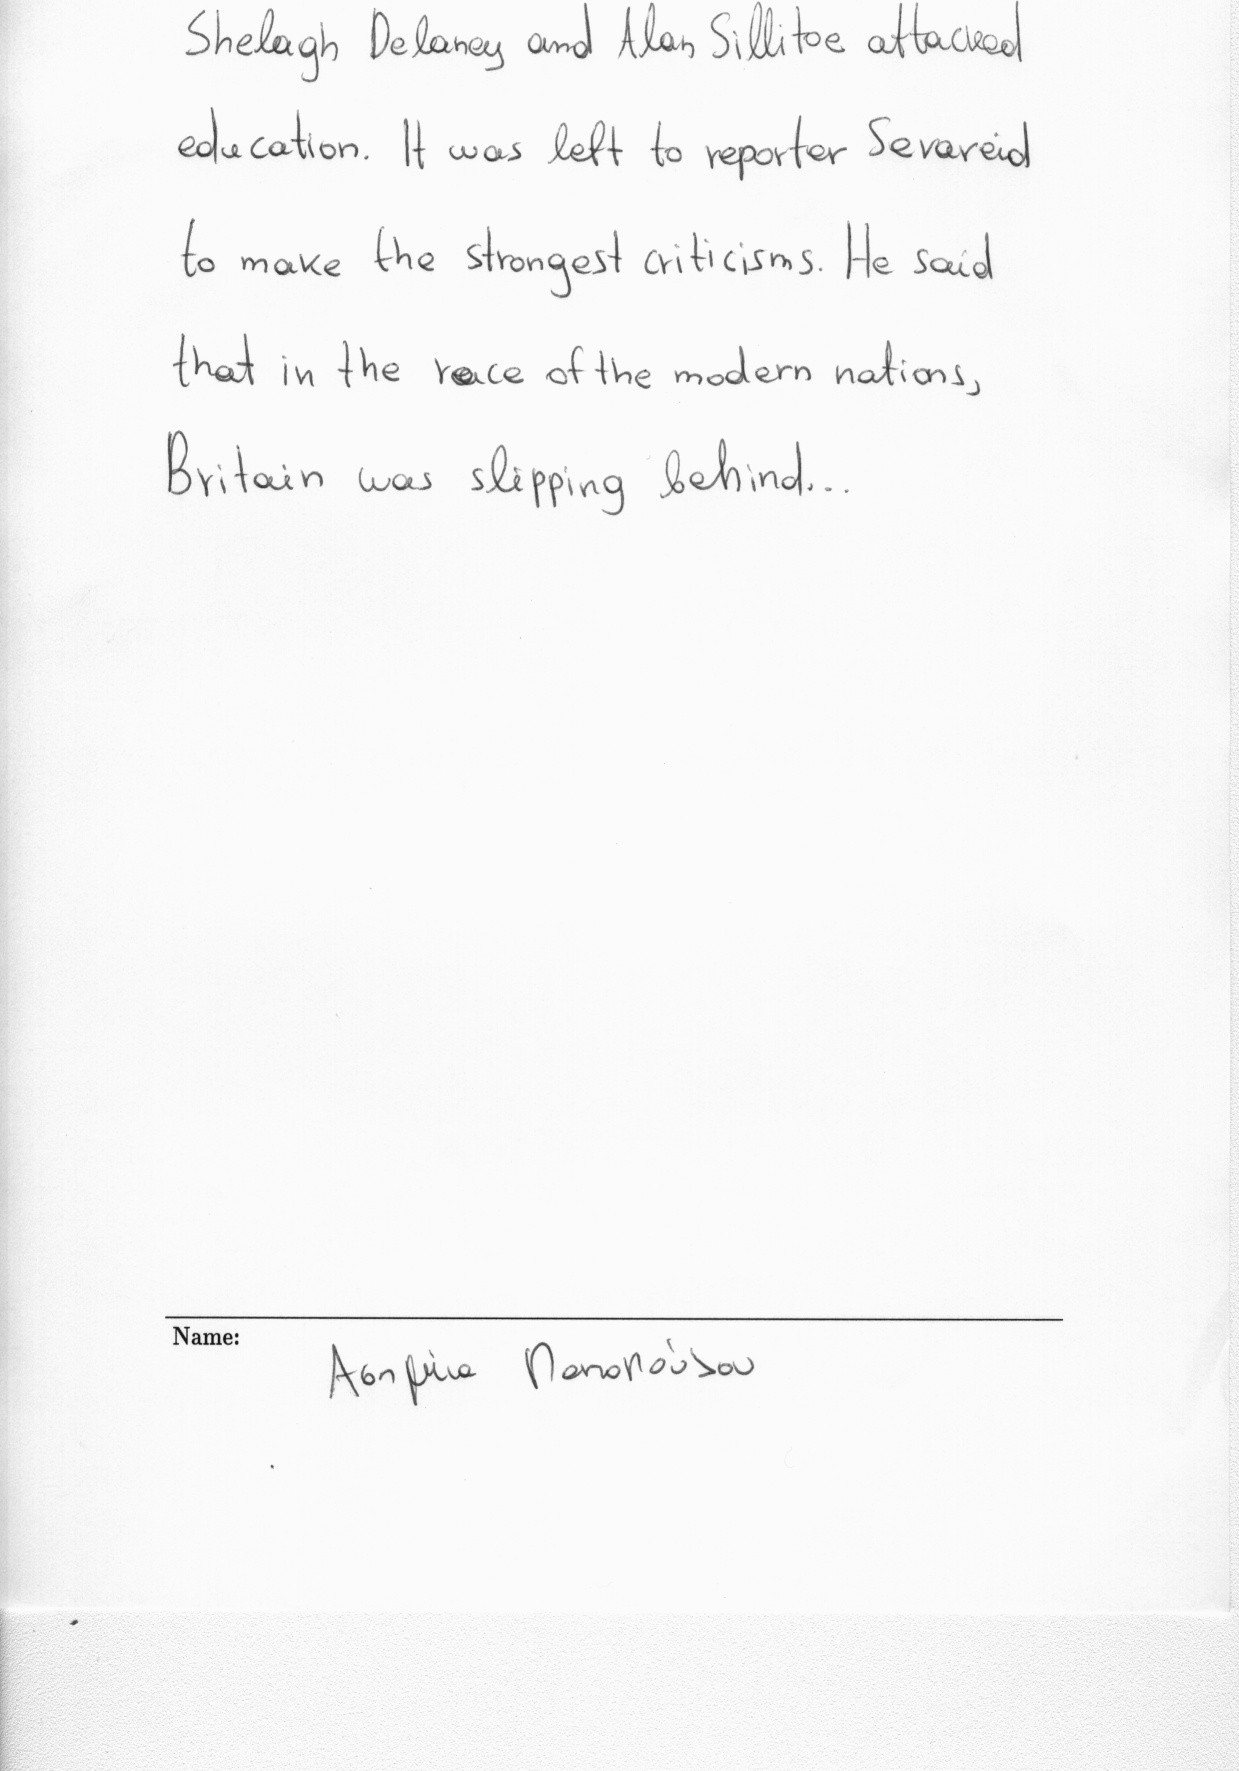 Shelagh Delaney and Alan Sillitoe attacked
education. It was left to reporter Sevareid
to make the strongest criticisms. He said
that in the race of the modern nations,
Britain was slipping behind...
Name: